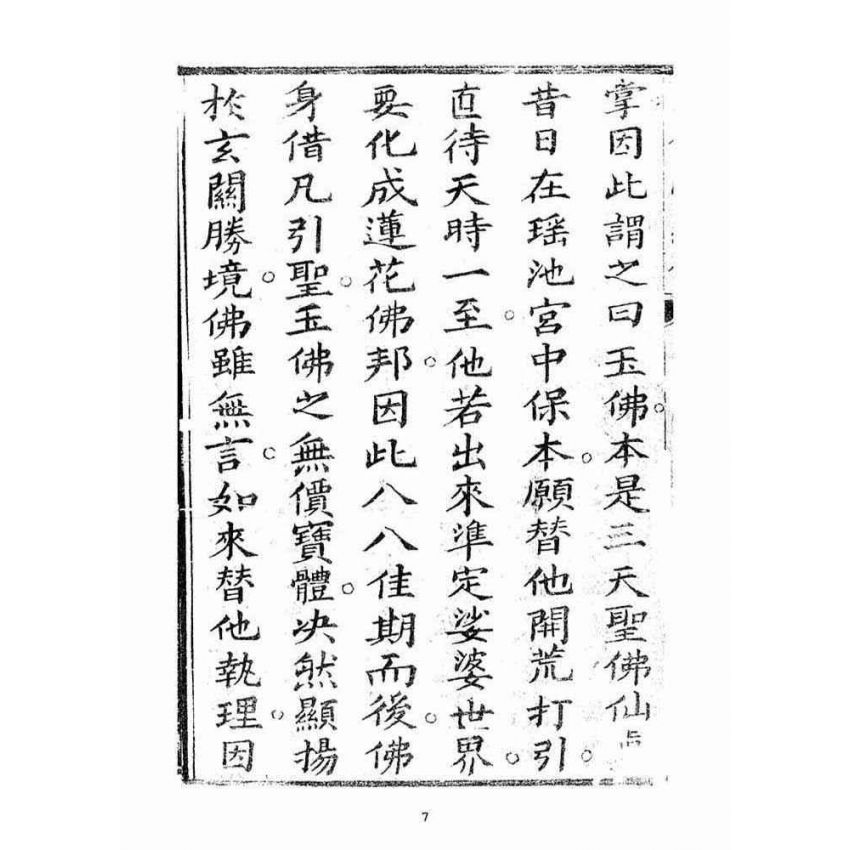 掌因此謂之曰玉佛。本是三天聖佛仙
昔日在瑶池宮中保本。願替他開荒打引。
直待天時一至。他若出來準定娑婆世界。
要化成蓮花佛邦。因此八八佳期而後。佛
身借凡引聖。玉佛之無價寶體。决然顯揚
於玄關勝境。佛雖無言。如來替他執理。因
7